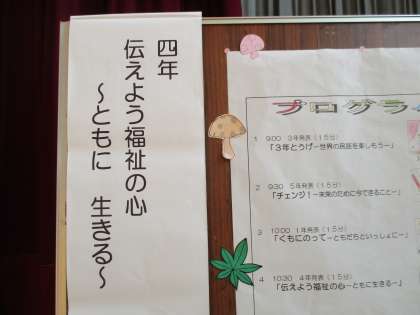 四年
伝えよう福祉の心
～ともに　生きる～
プログラ
1　9:00　3年発表（15分）
「3年とうげー世界の民話を楽しもうー」
2　9:30　5年発表（15分）
「チェンジ！ー未来のために今できることー」
3　10:00　1年発表（15分）
「くもにのってーともだちといっしょにー」
4　10:30　4年発表（15分）
「伝えよう福祉の心ーともに生きるー」